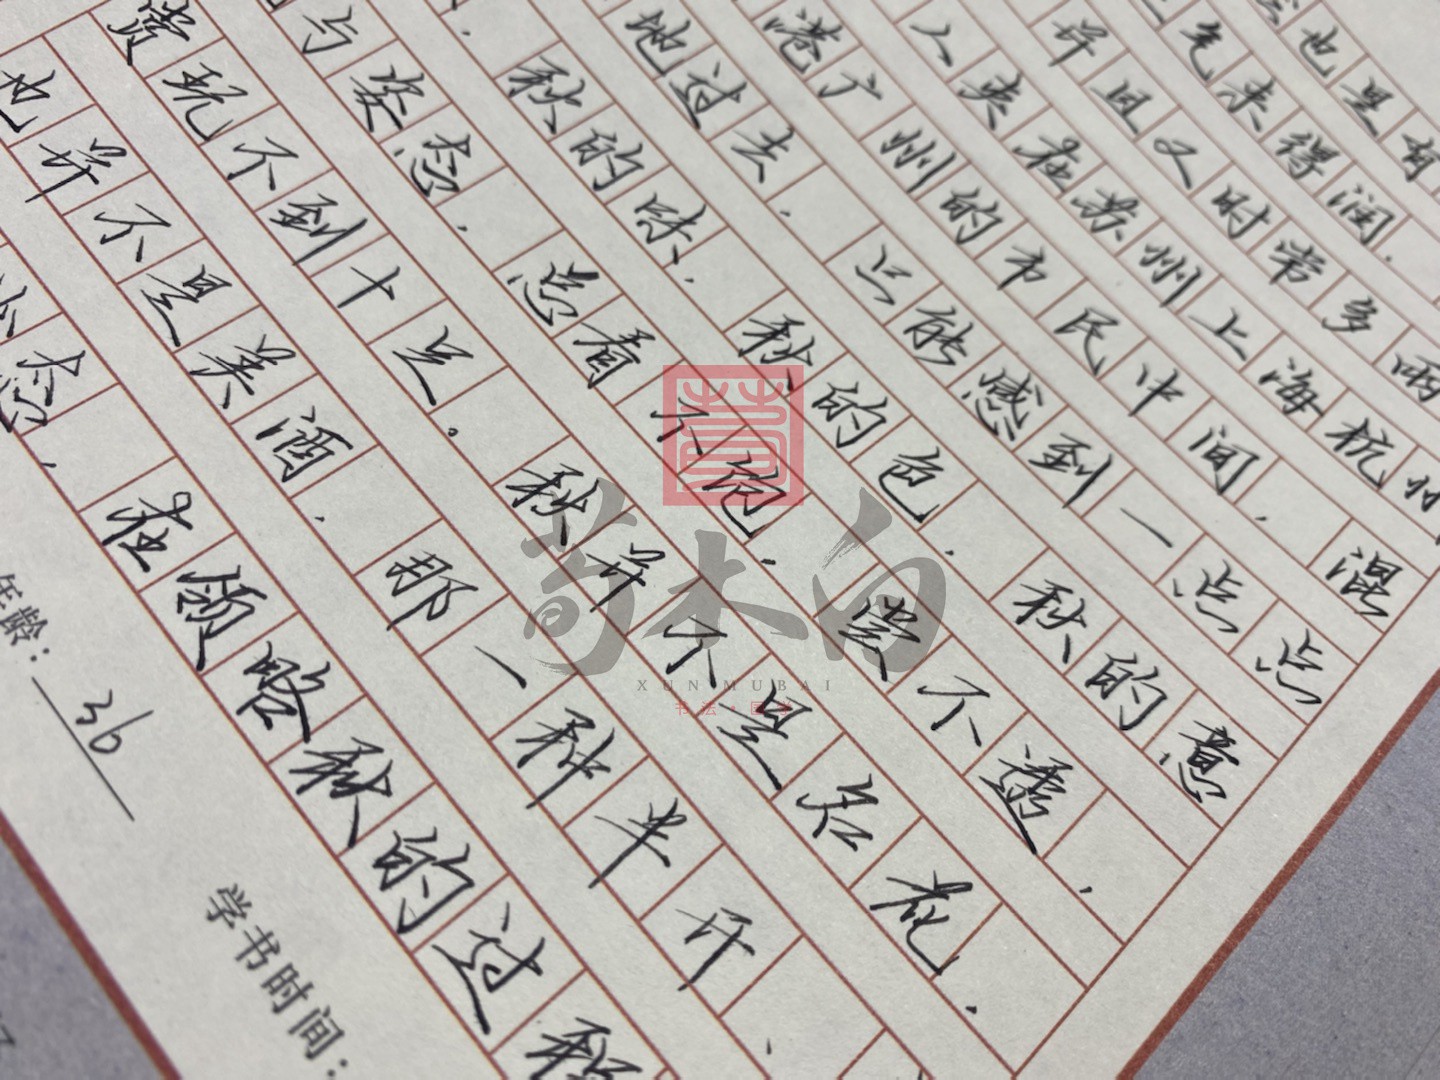 也是有
气来得润，
并且又时常多雨
人夹在苏州上海杭州
港广州的市民中间，混
地过去，只能感到一点点
秋的味，秋的色，秋的意
与姿态，总看不饱，尝不透，
赏玩不到十足。秋并不是名花，
也并不是美酒，那一种半开，
态，在领略秋的过程
年龄：36
学书时间：
荀木白
XUN MUBAI